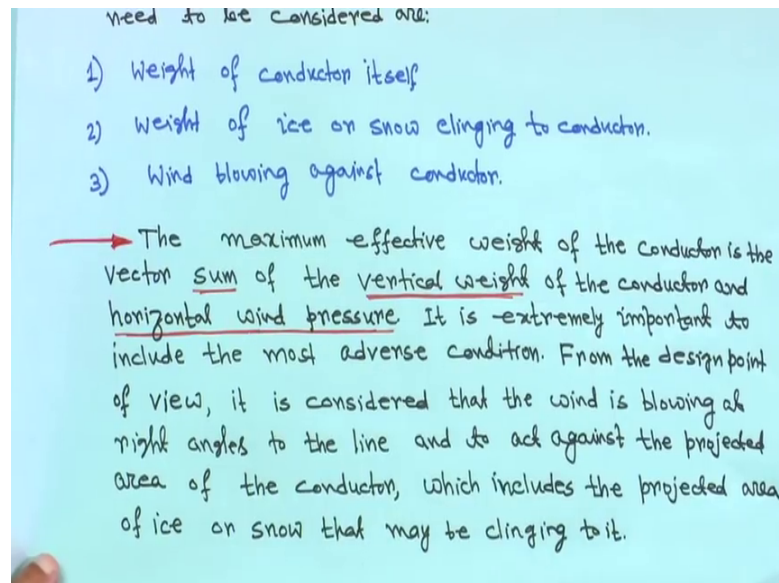 need to be considered are:
1) Weight of conductor itself
2) Weight of ice or snow clinging to conductor.
3) Wind blowing against conductor.
The maximum effective weight of the conductor is the
vector sum of the vertical weight of the conductor and
horizontal wind pressure. It is extremely important to
include the most adverse condition. From the design point
of view, it is considered that the wind is blowing at
right angles to the line and to act against the projected
area of the conductor, which includes the projected area
of ice or snow that may be clinging to it.